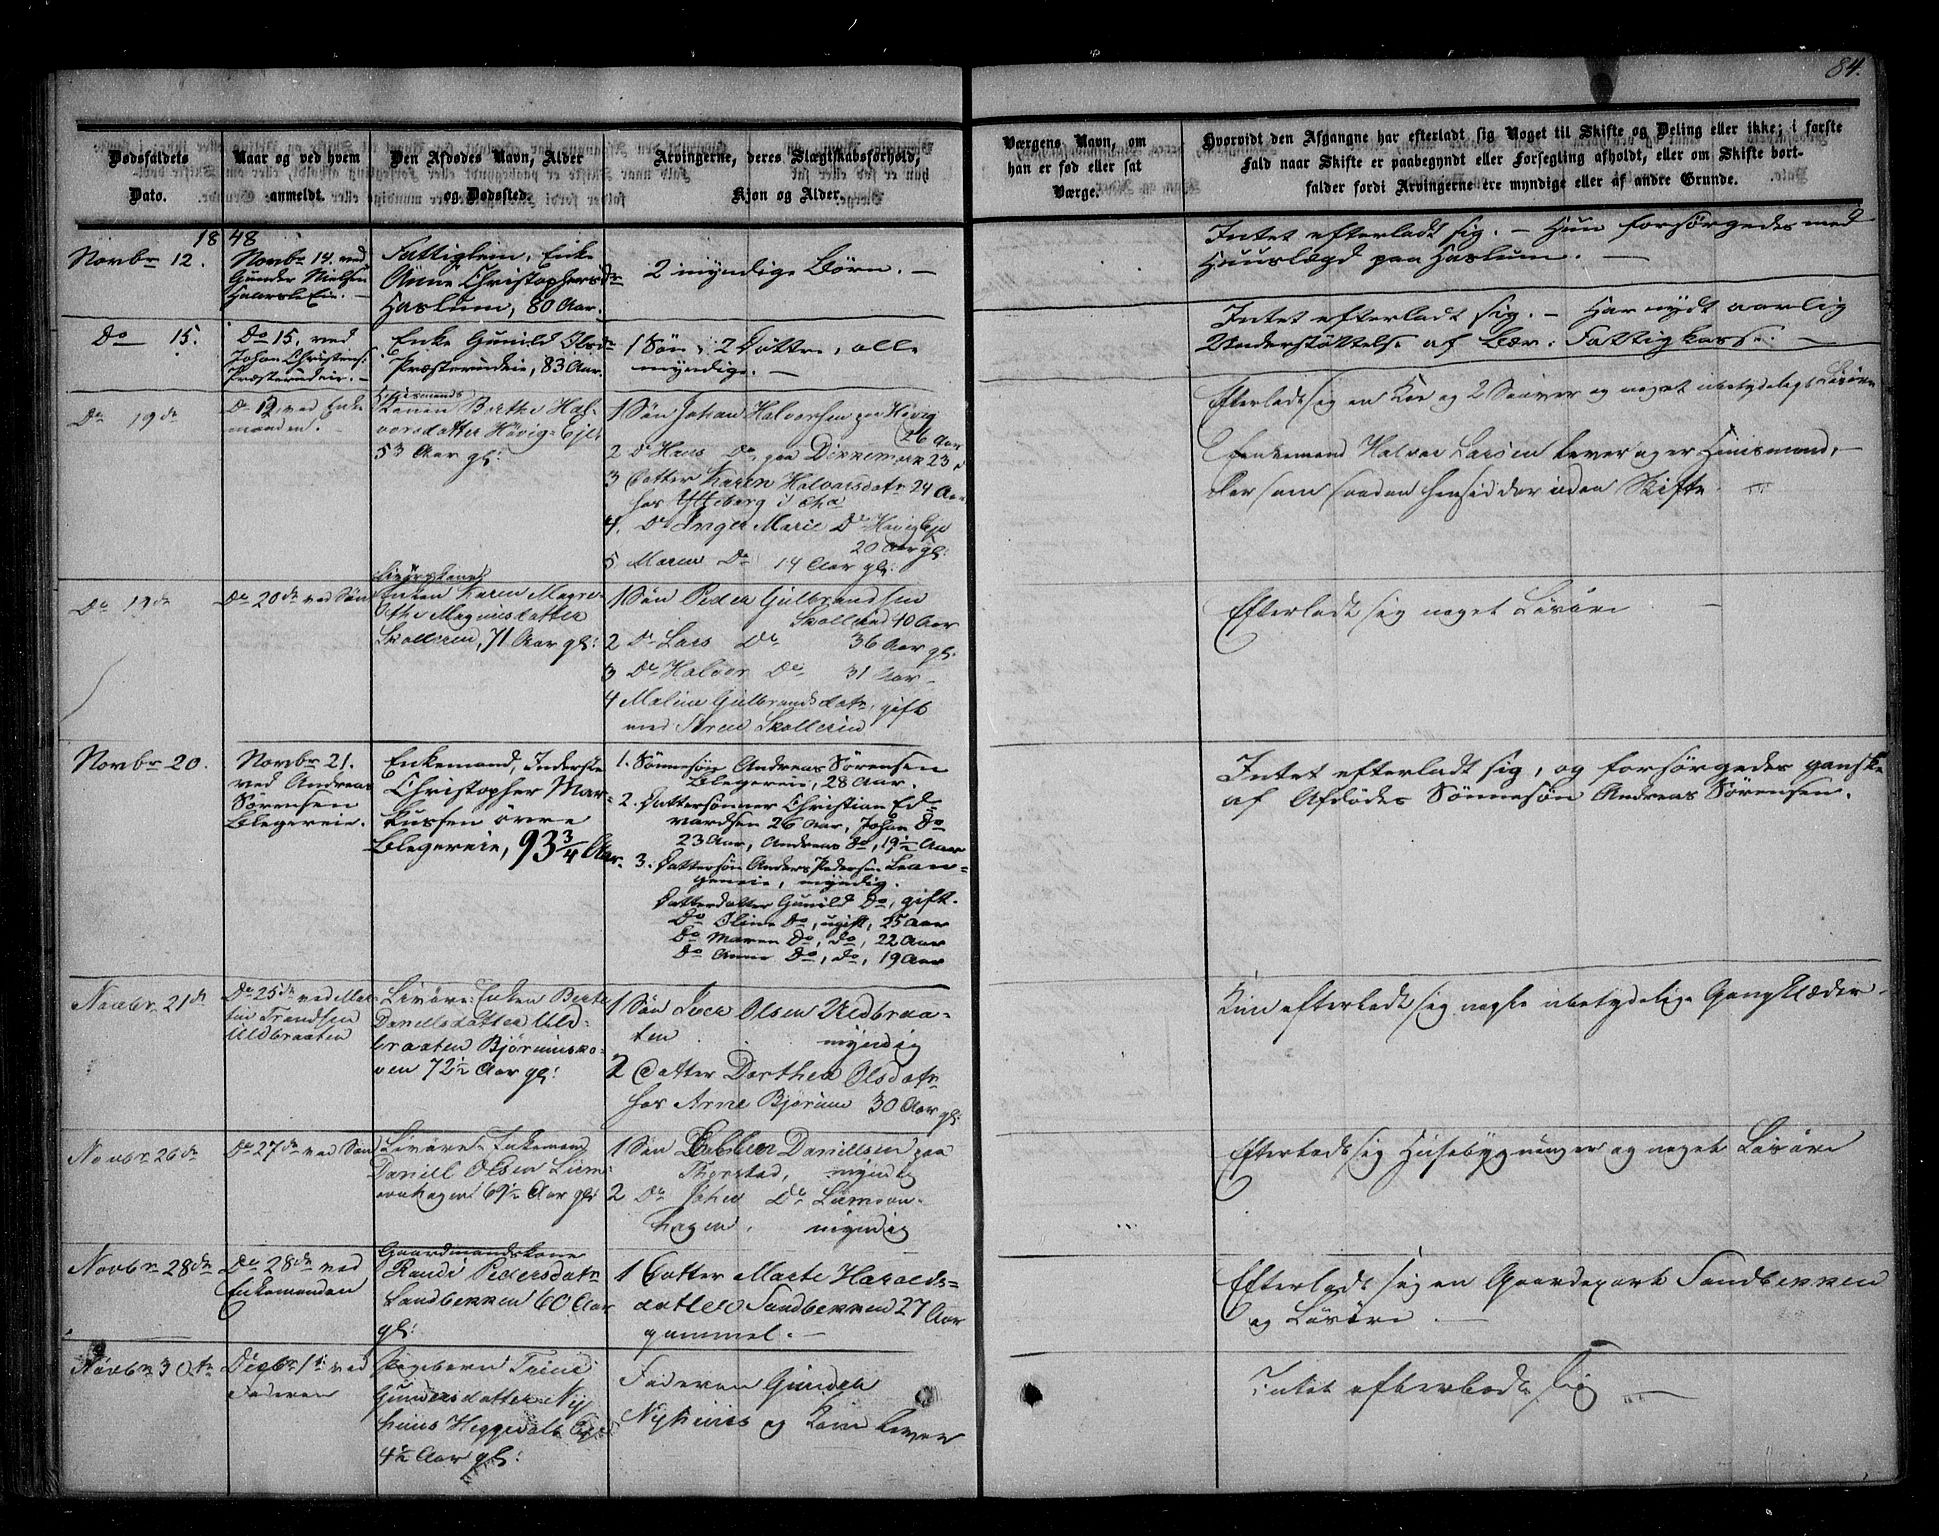 84.
Dødsfaldets
Dato.
Naar og ved hvem
anmeldt.
Den Afdødes Navn, Alder
og Dødssted.
Arvingerne, deres Slægtskabsforhold,
Kjøn og Alder.
Værgens Navn, om
han er fød eller sat
Værge.
Hvorvidt den Afgangne har efterladt sig Noget til Skifte og Deling eller ikke; i første
Fald naar Skifte er paabegyndt eller Forsegling afholdt, eller om Skifte bort-
falder fordi Arvingerne ere myndige eller af andre Grunde.
1848
Novbr 12.
Novbr 14. ved
Gunder Nielsen
Fattiglem, Enke
Anne Christophersdr
Haslum, 80 Aar.
2 myndige Børn. —
Intet efterladt sig. — Hun forsørgedes med
Huuslægd paa Haslum. —
Do 15.
Do 15. ved
Johan Christens:
Præsterudeie. —
Enke Gunild Olsdr
Præsterudeie, 83 Aar.
1 Søn, 2 Døttre, alle
myndige. —
Intet efterladt sig. — Har nydt aarlig
Understøttelse af Bær. Fattigkasse. —
Do 19de
Do 19 ved Enke
manden.
Huusmands
Konen Berthe Hal-
vorsdatter Høvig-Eje
53 Aar gl:
1 Søn Johan Halvorsen paa Høvig
26 Aar
2 Do Hans Do paa Dikkemark 23
3 Datter Karen Halvorsdatr 24 Aar
hos
4. Do Inger Marie Do Høvig Eje
20 Aar gl:
5 Maren Do 14 Aar gl:
Efterladt sig en Koe og 2 Souver og noget ubetydeligt Løsøre
Enkemand Halvor Larsen lever og er Huusmand,
der som saadan hensidder uden Skifte.
Do 19de
Do 20de ved Søn
Enken Karen Magre-
the Magnusdatter
Skollerud, 71 Aar gl:
1 Søn Peder Gulbrandsen
Skollerud 40 Aar
2 Do Lars Do 36 Aar gl:
3 Do Halvor Do 31 Aar —
4 Maline Gulbrandsdatr, gift
med Skollerud
Efterladt sig noget Løsøre —
Novbr 20.
Novbr 21.
ved Andreas
Sørensen
Blegereie.
Enkemand, Inderste
Christopher Mar-
kussen øvre
Blegereie, 93 3/4 Aar.
1. Sønnesøn Andreas Sørensen
Blegereie, 28 Aar.
2. Dattersønner Christian Ed-
vardsen 26 Aar, Johan Do
23 Aar, Andreas Do, 19 1/2 Aar
3. Dattersøn Anders Pedersen
myndig.
Datterdatter Gunild Do, gift.
Do Oline Do, ugift, 25 Aar
Do Maren Do, do, 22 Aar
Do Anne Do, do, 19 Aar
Intet efterladt sig, og forsørgedes ganske
af Afdødes Sønnesøn Andreas Sørensen.
Novbr 21de
Do 25de ved Mar-
ten Trondsen
Uldbraaten
Enken Berte
Danielsdatter Uld-
braaten Bjørumsko-
ven 72 1/2 Aar gl:
1 Søn Iver Olsen Uldbraa-
ten myndig
2 Datter Dorthea Olsdatr
hos Arne Bjørum 30 Aar gl:
Kun efterladt sig nogle ubetydelige Gangklæder
Novbr 26de
Do 27de ved Søn
Enkemand
Daniel Olsen
69 1/2 Aar gl:
1 Søn Danielsen paa
Thorstad, myndig
2 Do Johan Do
hagen. myndig
Efterladt sig Huusebygninger og noget Løsøre
Novbr 28de
Do 28de ved
Enkemanden
Gaardmandskone
Randi Pedersdatr
Sandbekken 60 Aar
gl:
1 Datter Marte Haralds-
datter Sandbekken 27 Aar
gammel. —
Efterladt sig en Gaardepart Sandbekken
og Løsøre. —
Novbr 30te
Decbr 1ste ved
Faderen
Pigebarn Trine
Gundersdatter Ny-
huus Heggedals Eje
4 1/2 Aar gl:
Faderen Gunder
Nyhuus og Kone lever
Intet efterladt sig —